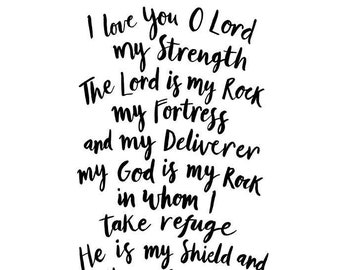 I love You O Lord
my Strength
The Lord is my Rock
my Fortress
and my Deliverer
my God is my Rock
in whom I
take refuge
He is my Shield and